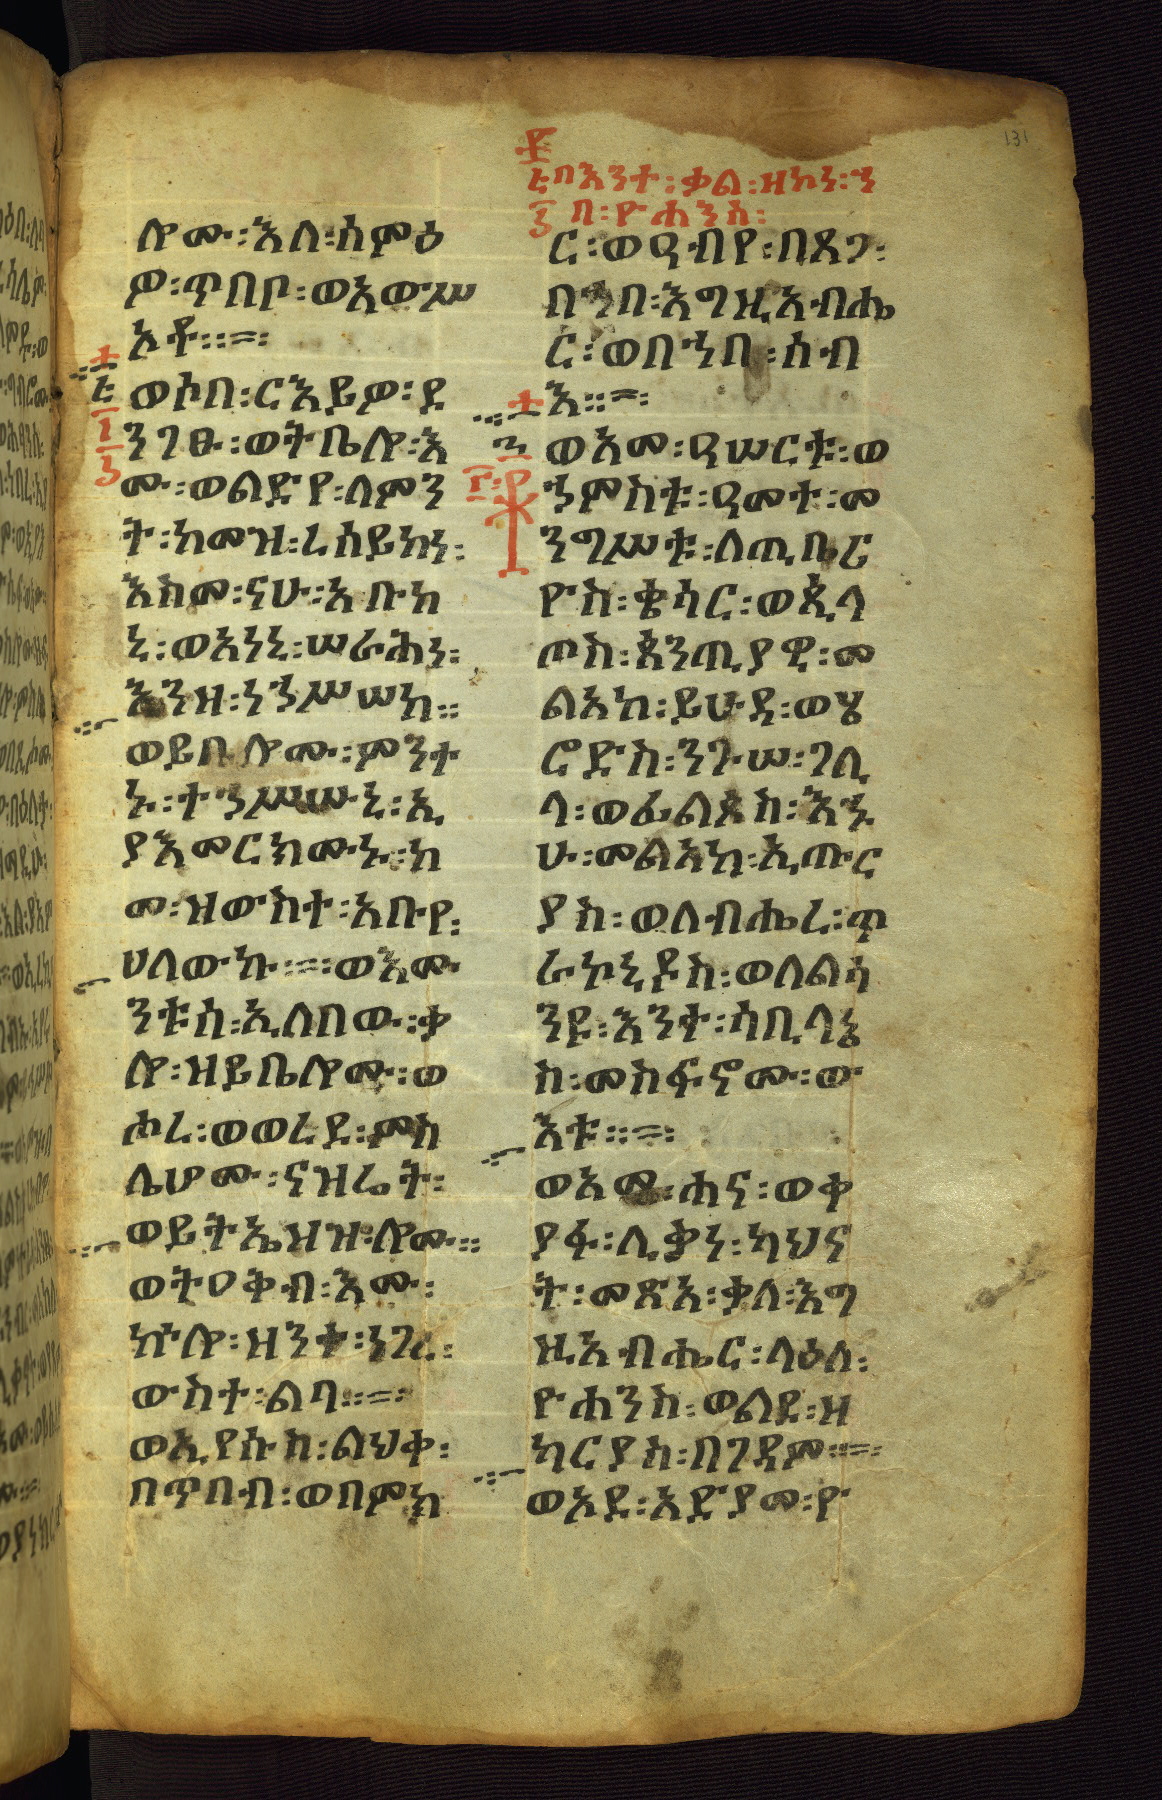 ፲
፩ በእንተ፡ቃል፡ዘኮነ፡ኀ
፫ በ፡ዮሐንስ፡
ሎሙ፡እለ፡ሰምዕ
ዎ፡ጥበቦ፡ወአውሥ
አቶ።=፡
ወሶበ፡ርእይዎ፡ደ
ንገፁ፡ወትቤሎ፡እ
ሙ፡ወልድየ፡ለምን
ት፡ከመዝ፡ረሰይከነ፡
እስመ፡ናሁ፡አቡከ
ኒ፡ወአነኒ፡ሠራሕነ፡
እንዘ፡ነኀሥሠከ።
ወይቤሎሙ፡ምንት
ኑ፡ተኀሥሡኒ፡ኢ
ያእመርክሙኑ፡ከ
መ፡ዝውስተ፡አቡየ፡
ሀለውኩ።=፡ወእሙ
ንቱሰ፡ኢለበው፡ቃ
ሎ፡ዘይቤሎሙ፡ወ
ሖረ፡ወወረደ፡ምስ
ሌሆሙ፡ናዝሬት፡
ወይትኤዘዝ፡ሎሙ።
ወትዐቅብ፡እሙ፡
ኵሎ፡ዘንተ፡ነገረ፡
ውስተ፡ልባ።=፡
ወኢየሱስ፡ልህቀ፡
በጥበብ፡ወበምክ
ር፡ወዲብየ፡በጸጋ፡
በኀበ፡እግዚአብሔ
ር፡ወበኀበ፡ሰብ
እ።=፡
ወአመ፡ዓሠርቱ፡ወ
ኀምስቱ፡ዓመተ፡መ
ንግሥቱ፡ለጢቤር
ዮስ፡ቄሳር፡ወጲላ
ጦስ፡ጰንጤያዊ፡መ
ልአከ፡ይሁዳ፡ወሄ
ሮድስ፡ንጉሠ፡ገሊ
ላ፡ወፊልጶስ፡እኁ
ሁ፡መልአከ፡ኢጡር
ያስ፡ወለብሔረ፡ጥ
ራኮኒዶስ፡ወለልሳ
ንዩ፡እንተ፡ሳቢላኔ
ስ፡መስፍኖሙ፡ው
እቱ።=፡
ወአመ፡ሐና፡ወቀ
ያፋ፡ሊቃነ፡ካህና
ት፡መጽአ፡ቃለ፡እግ
ዚአብሔር፡ላዕለ፡
ዮሐንስ፡ወልደ፡ዘ
ካርያስ፡በገዳም።=፡
ወአደ፡አድያመ፡ዮ